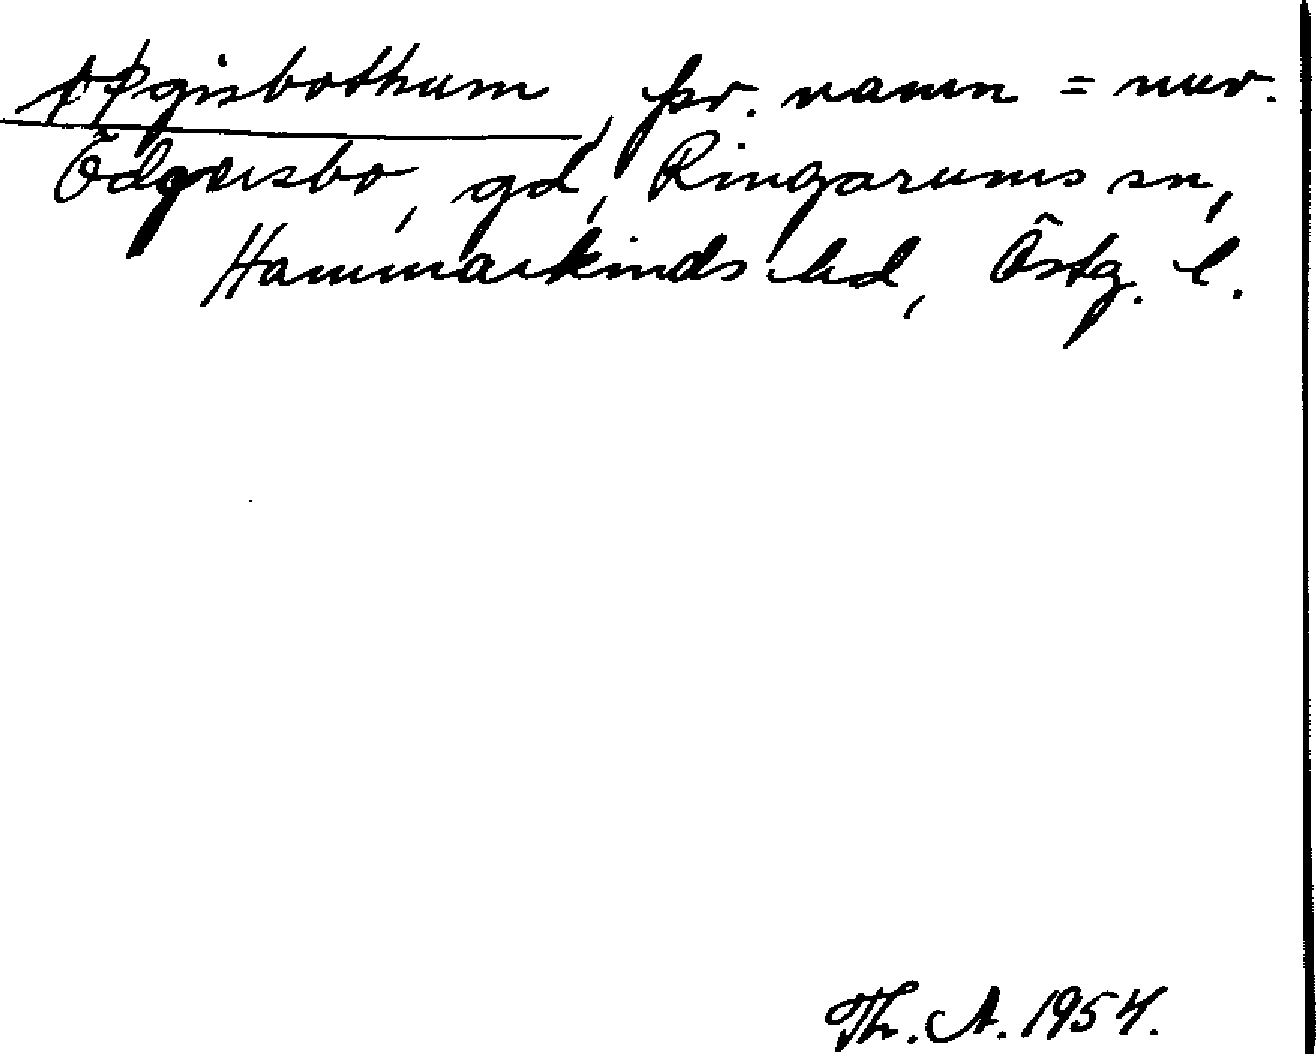 Øpgisbothum, fsv. namn = nuv.
Ödgersbo, gd, Ringarums sn,
Hammarkinds hd, Östg. l.
Th. A. 1954.